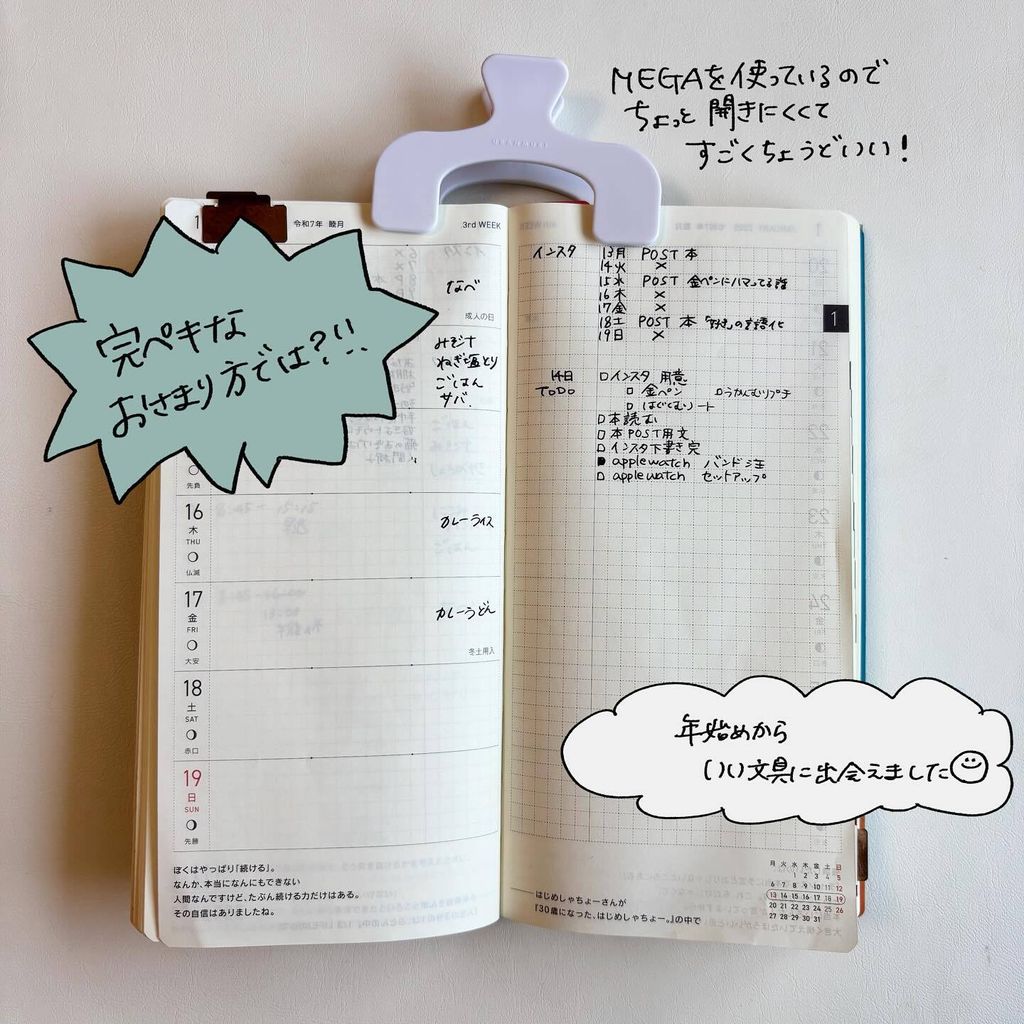 MEGAを使っているので
ちょっと開きにくくて
すごくちょうどいい!
完ペキな
おさまり方では?!!
1
令和7年 睦月
3rd WEEK
なべ
成人の日
みそ汁
ねぎ塩とり
ごはん
サバ.
先負
16
木
THU
仏滅
カレーライス
17
金
FRI
大安
カレーうどん
冬土用入
18
土
SAT
赤口
19
日
SUN
先勝
ぼくはやっぱり「続ける」。
なんか、本当になんにもできない
人間なんですけど、たぶん続ける力だけはある。
その自信はありましたね。
インスタ
13月 POST 本
14火 ×
15水 POST 金ペンにハマってる話
16木 ×
17金 ×
18土 POST 本 の言語化
19日 ×
1
14日
TODO
□インスタ 用意
□ 金ペン
□ はぐくむノート
□本読む
□本POST用文
□インスタ下書き完
■applewatch バンド注
□applewatch セットアップ
年始めから
いい文具に出会えました
はじめしゃちょーさんが
『30歳になった、はじめしゃちょー。』の中で
月 火 水 木 金 土 日
1 2 3 4 5
6 7 8 9 10 11 12
13 14 15 16 17 18 19
20 21 22 23 24 25 26
27 28 29 30 31